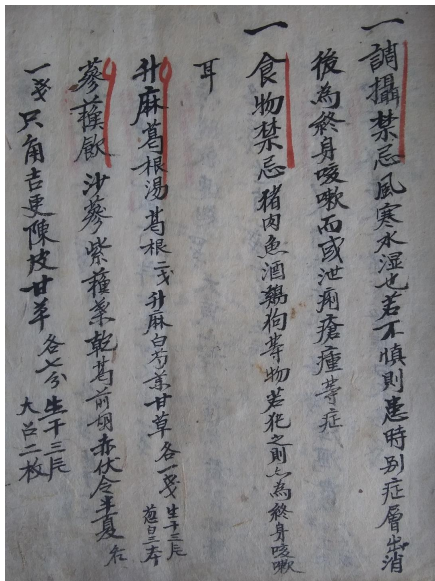 一調攝禁忌風寒水湿也若不慎則患時別症層出消
後為終身咳嗽而或泄痢瘡瘇等症
一食物禁忌猪肉魚酒鷄狗等物若犯之則亦為終身咳嗽
耳
升麻葛根湯葛根二戔升麻白芍薬甘草各一戔生干三片葱白三本
蔘蘓飮沙蔘紫蘓葉乾葛前胡赤伏令半夏各
一戔只角吉更陳皮甘草各七分生干三片大召二枚